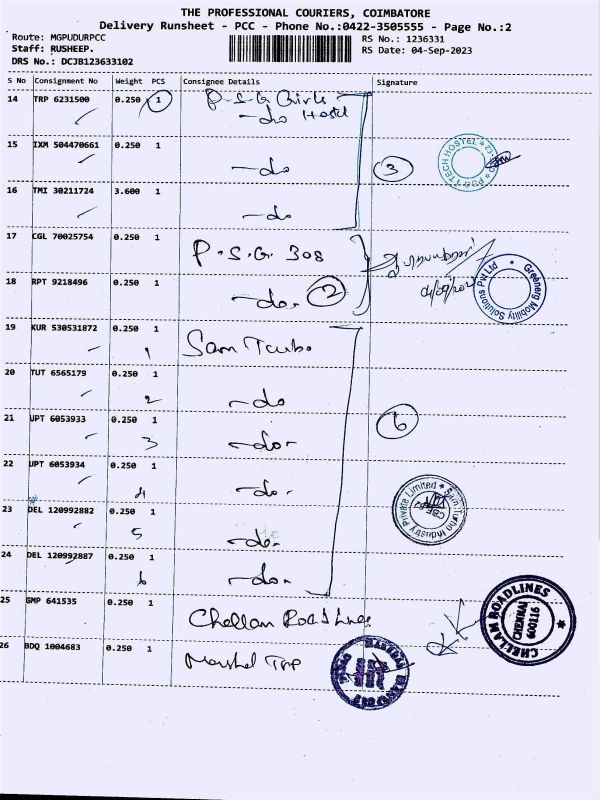 THE PROFESSIONAL COURIERS, COIMBATORE
Delivery Runsheet - PCC - Phone No.:0422-3505555 - Page No.:2
Route: MGPUDURPCC
RS No.: 1236331
Staff: RUSHEEP.
RS Date: 04-Sep-2023
DRS No.: DCJB123633102
S No Consignment No Weight PCS Consignee Details Signature
14 TRP 6231500 0.250 1 P.S.G Girls
-do Hostel
15 IXM 504470661 0.250 1 -do
3
PSG I TECH HOSTEL
16 TMI 30211724 3.600 1 -do
17 CGL 70025754 0.250 1 P.S.G. 308
18 RPT 9218496 0.250 1 -do- 2
Greenerg Mobility Solutions Pvt Ltd
19 KUR 530531872 0.250 1 Sam Turbo
1
20 TUT 6565179 0.250 1 -do
2
21 UPT 6053933 0.250 1 -do-
3
6
22 UPT 6053934 0.250 1 -do-
4
23 DEL 120992882 0.250 1 -do-
5
Sam Turbo Industry Private Limited
24 DEL 120992887 0.250 1 -do-
6
25 GMP 641535 0.250 1 Chellam Roadlines
CHELLAM ROADLINES
CHENNAI
600116
26 BDQ 1004683 0.250 1